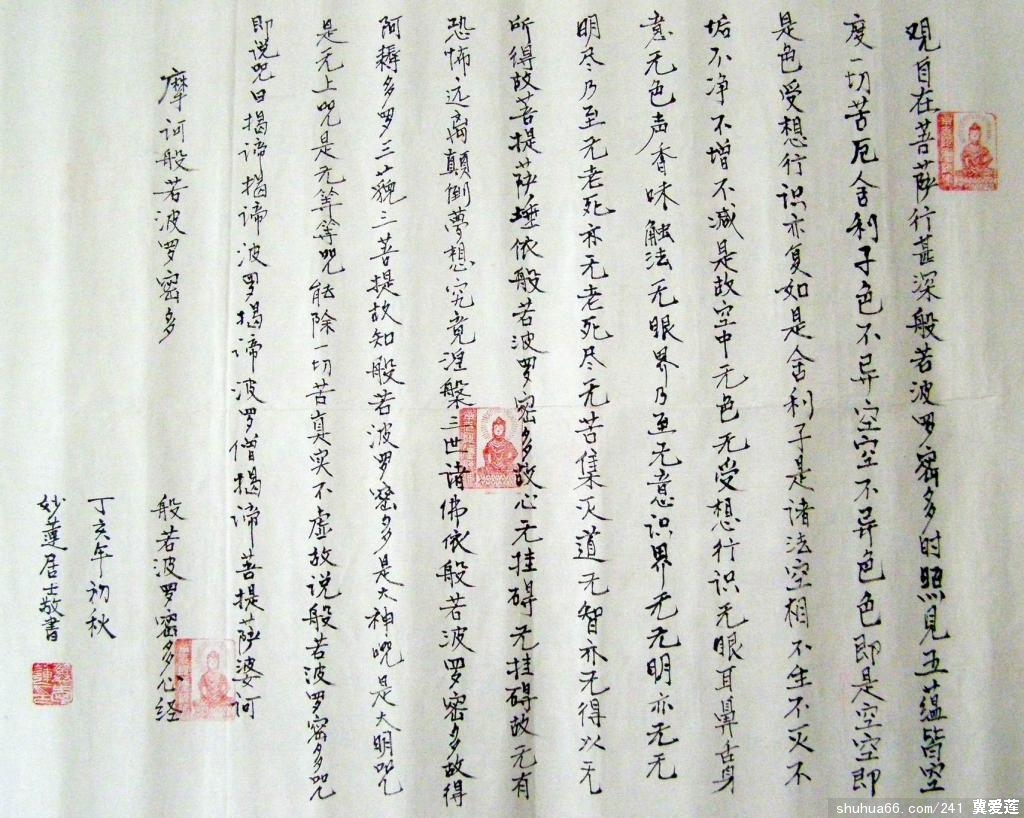 观自在菩萨行甚深般若波罗密多时照见五蕴皆空
度一切苦厄舍利子色不异空空不异色色即是空空即
是色受想行识亦复如是舍利子是诸法空相不生不灭不
垢不净不增不减是故空中无色无受想行识无眼耳鼻舌身
意无色声香味触法无眼界乃至无意识界无无明亦无无
明尽乃至无老死亦无老死尽无苦集灭道无智亦无得以无
所得故菩提萨埵依般若波罗密多故心无挂碍无挂碍故无有
恐怖远离颠倒夢想究竟涅槃三世诸佛依般若波罗密多故得
阿耨多罗三藐三菩提故知般若波罗密多是大神咒是大明咒
是无上咒是无等等咒能除一切苦真实不虚故说般若波罗密多咒
即说咒曰揭谛揭谛波罗揭谛波罗僧揭谛菩提萨婆诃
摩诃般若波罗密多
般若波罗密多心经
丁亥年初秋
妙蓮居士敬書
shuhua66.com/241 冀爱莲